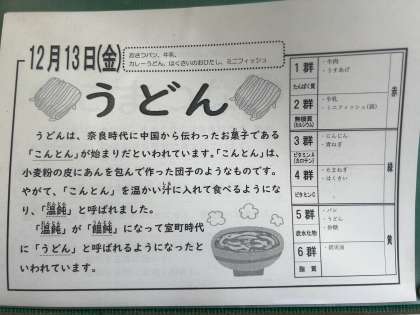 12月13日(金)
おさつパン、牛乳、
カレーうどん、はくさいのおひたし、ミニフィッシュ
うどん
うどんは、奈良時代に中国から伝わったお菓子である
「こんとん」が始まりだといわれています。「こんとん」は、
小麦粉の皮にあんを包んで作った団子のようなものです。
やがて、「こんとん」を温かい汁に入れて食べるようにな
り、「温飩」と呼ばれました。
「温飩」が「饂飩」になって室町時代
に「うどん」と呼ばれるようになったと
いわれています。
1群
たんぱく質
・牛肉
・うすあげ
2群
無機質
(カルシウム)
・牛乳
・ミニフィッシュ(袋)
赤
3群
ビタミンA
(カロテン)
・にんじん
・青ねぎ
4群
ビタミンC
・たまねぎ
・はくさい
緑
5群
炭水化物
・パン
・うどん
・砂糖
6群
脂質
黄